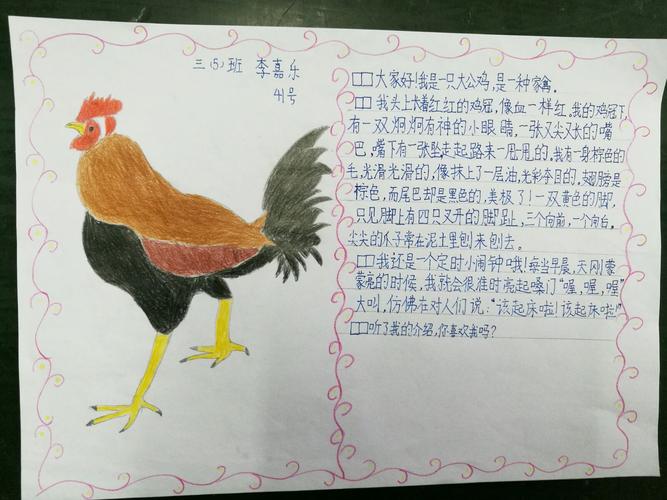 三(5)班 李嘉乐
41号
大家好!我是一只大公鸡,是一种家禽。
我头上长着红红的鸡冠,像血一样红。我的鸡冠下,
有一双炯炯有神的小眼睛,一张又尖又长的嘴
巴,嘴下有一张坠,走起路来一甩一甩的,我有一身棕色的
毛,光滑光滑的,像抹上了一层油,光彩夺目的,翅膀是
棕色,而尾巴却是黑色的,美极了!一双黄色的脚,
只见脚上有四只叉开的脚趾,三个向前,一个向后。
尖尖的爪子常在泥土里刨来刨去。
我还是一个定时小闹钟哦!每当早晨,天刚蒙
蒙亮的时候,我就会很准时亮起嗓门“喔,喔,喔”
大叫,仿佛在对人们说:“该起床啦!该起床啦!”
听了我的介绍,你喜欢我吗?